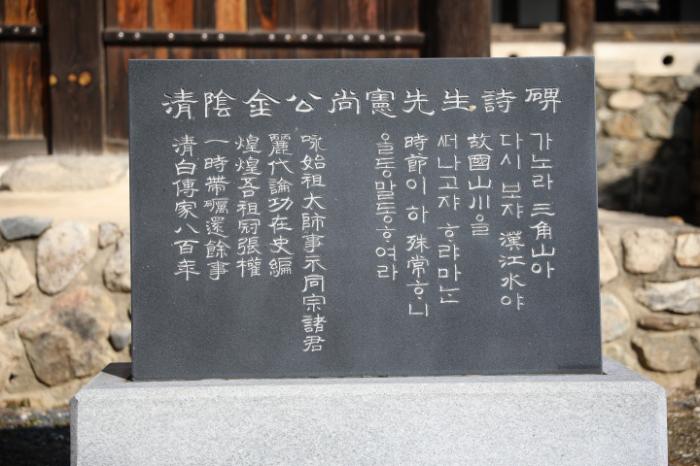 清陰金公尚憲先生詩碑
가노라 三角山아
다시 보쟈 漢江水야
故國山川을
써나고쟈 ᄒᆞ랴마ᄂᆞᆫ
時節이 하 殊常ᄒᆞ니
올동말동ᄒᆞ여라
咏始祖太師事示同宗諸君
麗代論功在史編
煌煌吾祖冠張權
一時帶礪還餘事
清白傳家八百年